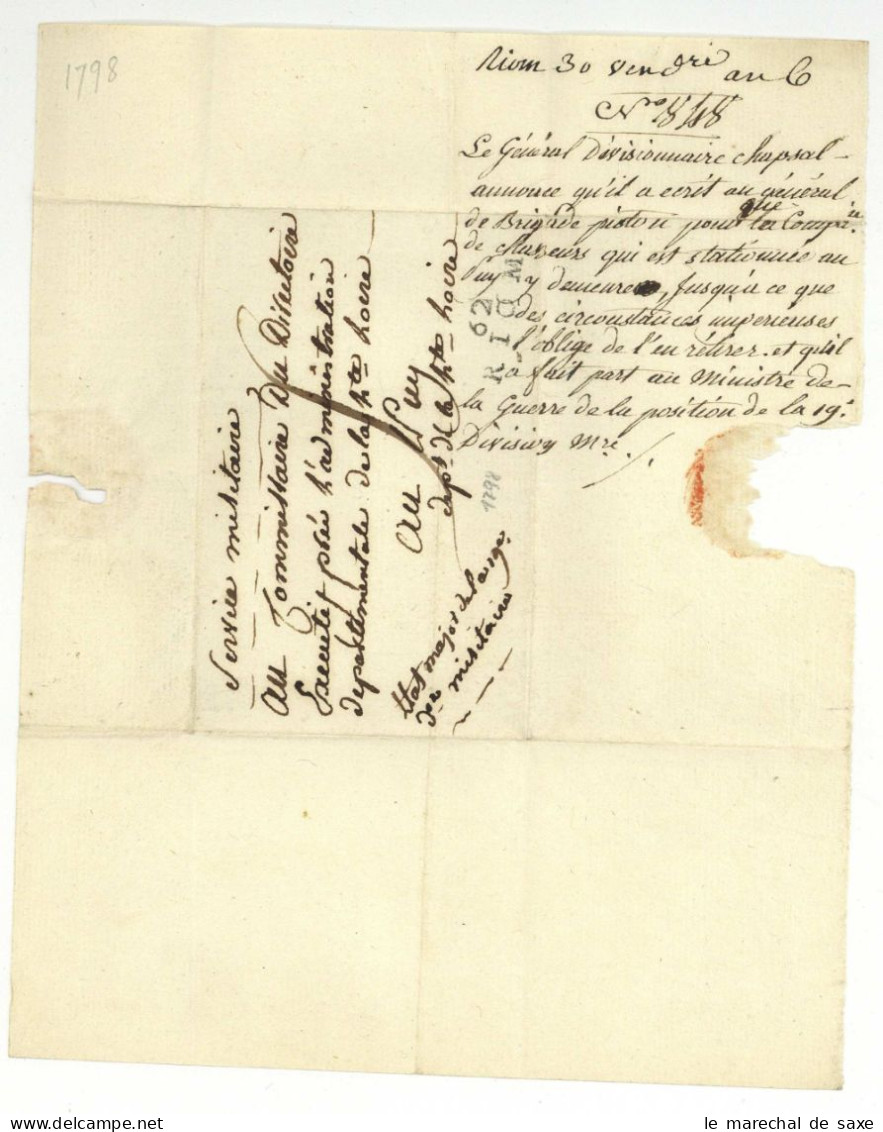 1798
Riom 30 vendre an 6
No 848
Le Général Divisionnaire chapsal
annonce qu'il a ecrit au général
de Brigade piston pour que la Compie
de chasseurs qui est stationnée au
Puy y demeure, jusqu'à ce que
des circonstances imperieuses
l'oblige de l'en rétirer. et qu'il
a fait part au Ministre de
la Guerre de la position de la 19e
Division Mre
62
RIOM
Service militaire
Au Commissaire Du Directoire
Executif près L'administration
departementale de la hte Loire
Au Puy
dept de la hte Loire
1798
Etat major de la 19e
don militaire
le marechal de saxe